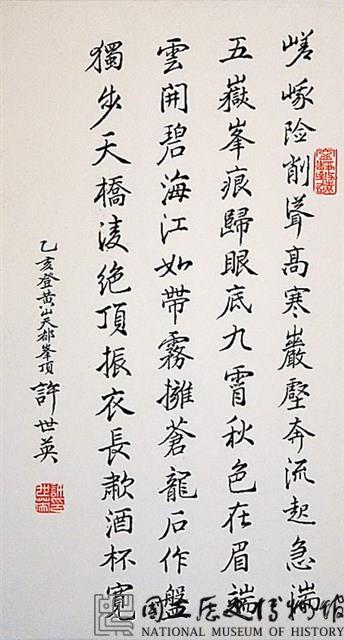 嵯峨险削聳高寒巖壑奔流起急湍
五嶽峯痕歸眼底九霄秋色在眉端
雲開碧海江如帶霧擁蒼龍石作盤
獨步天橋淩絶頂振衣長歗酒杯寬
乙亥登黃山天都峯頂 許世英
國立歷史博物館
NATIONAL MUSEUM OF HISTORY